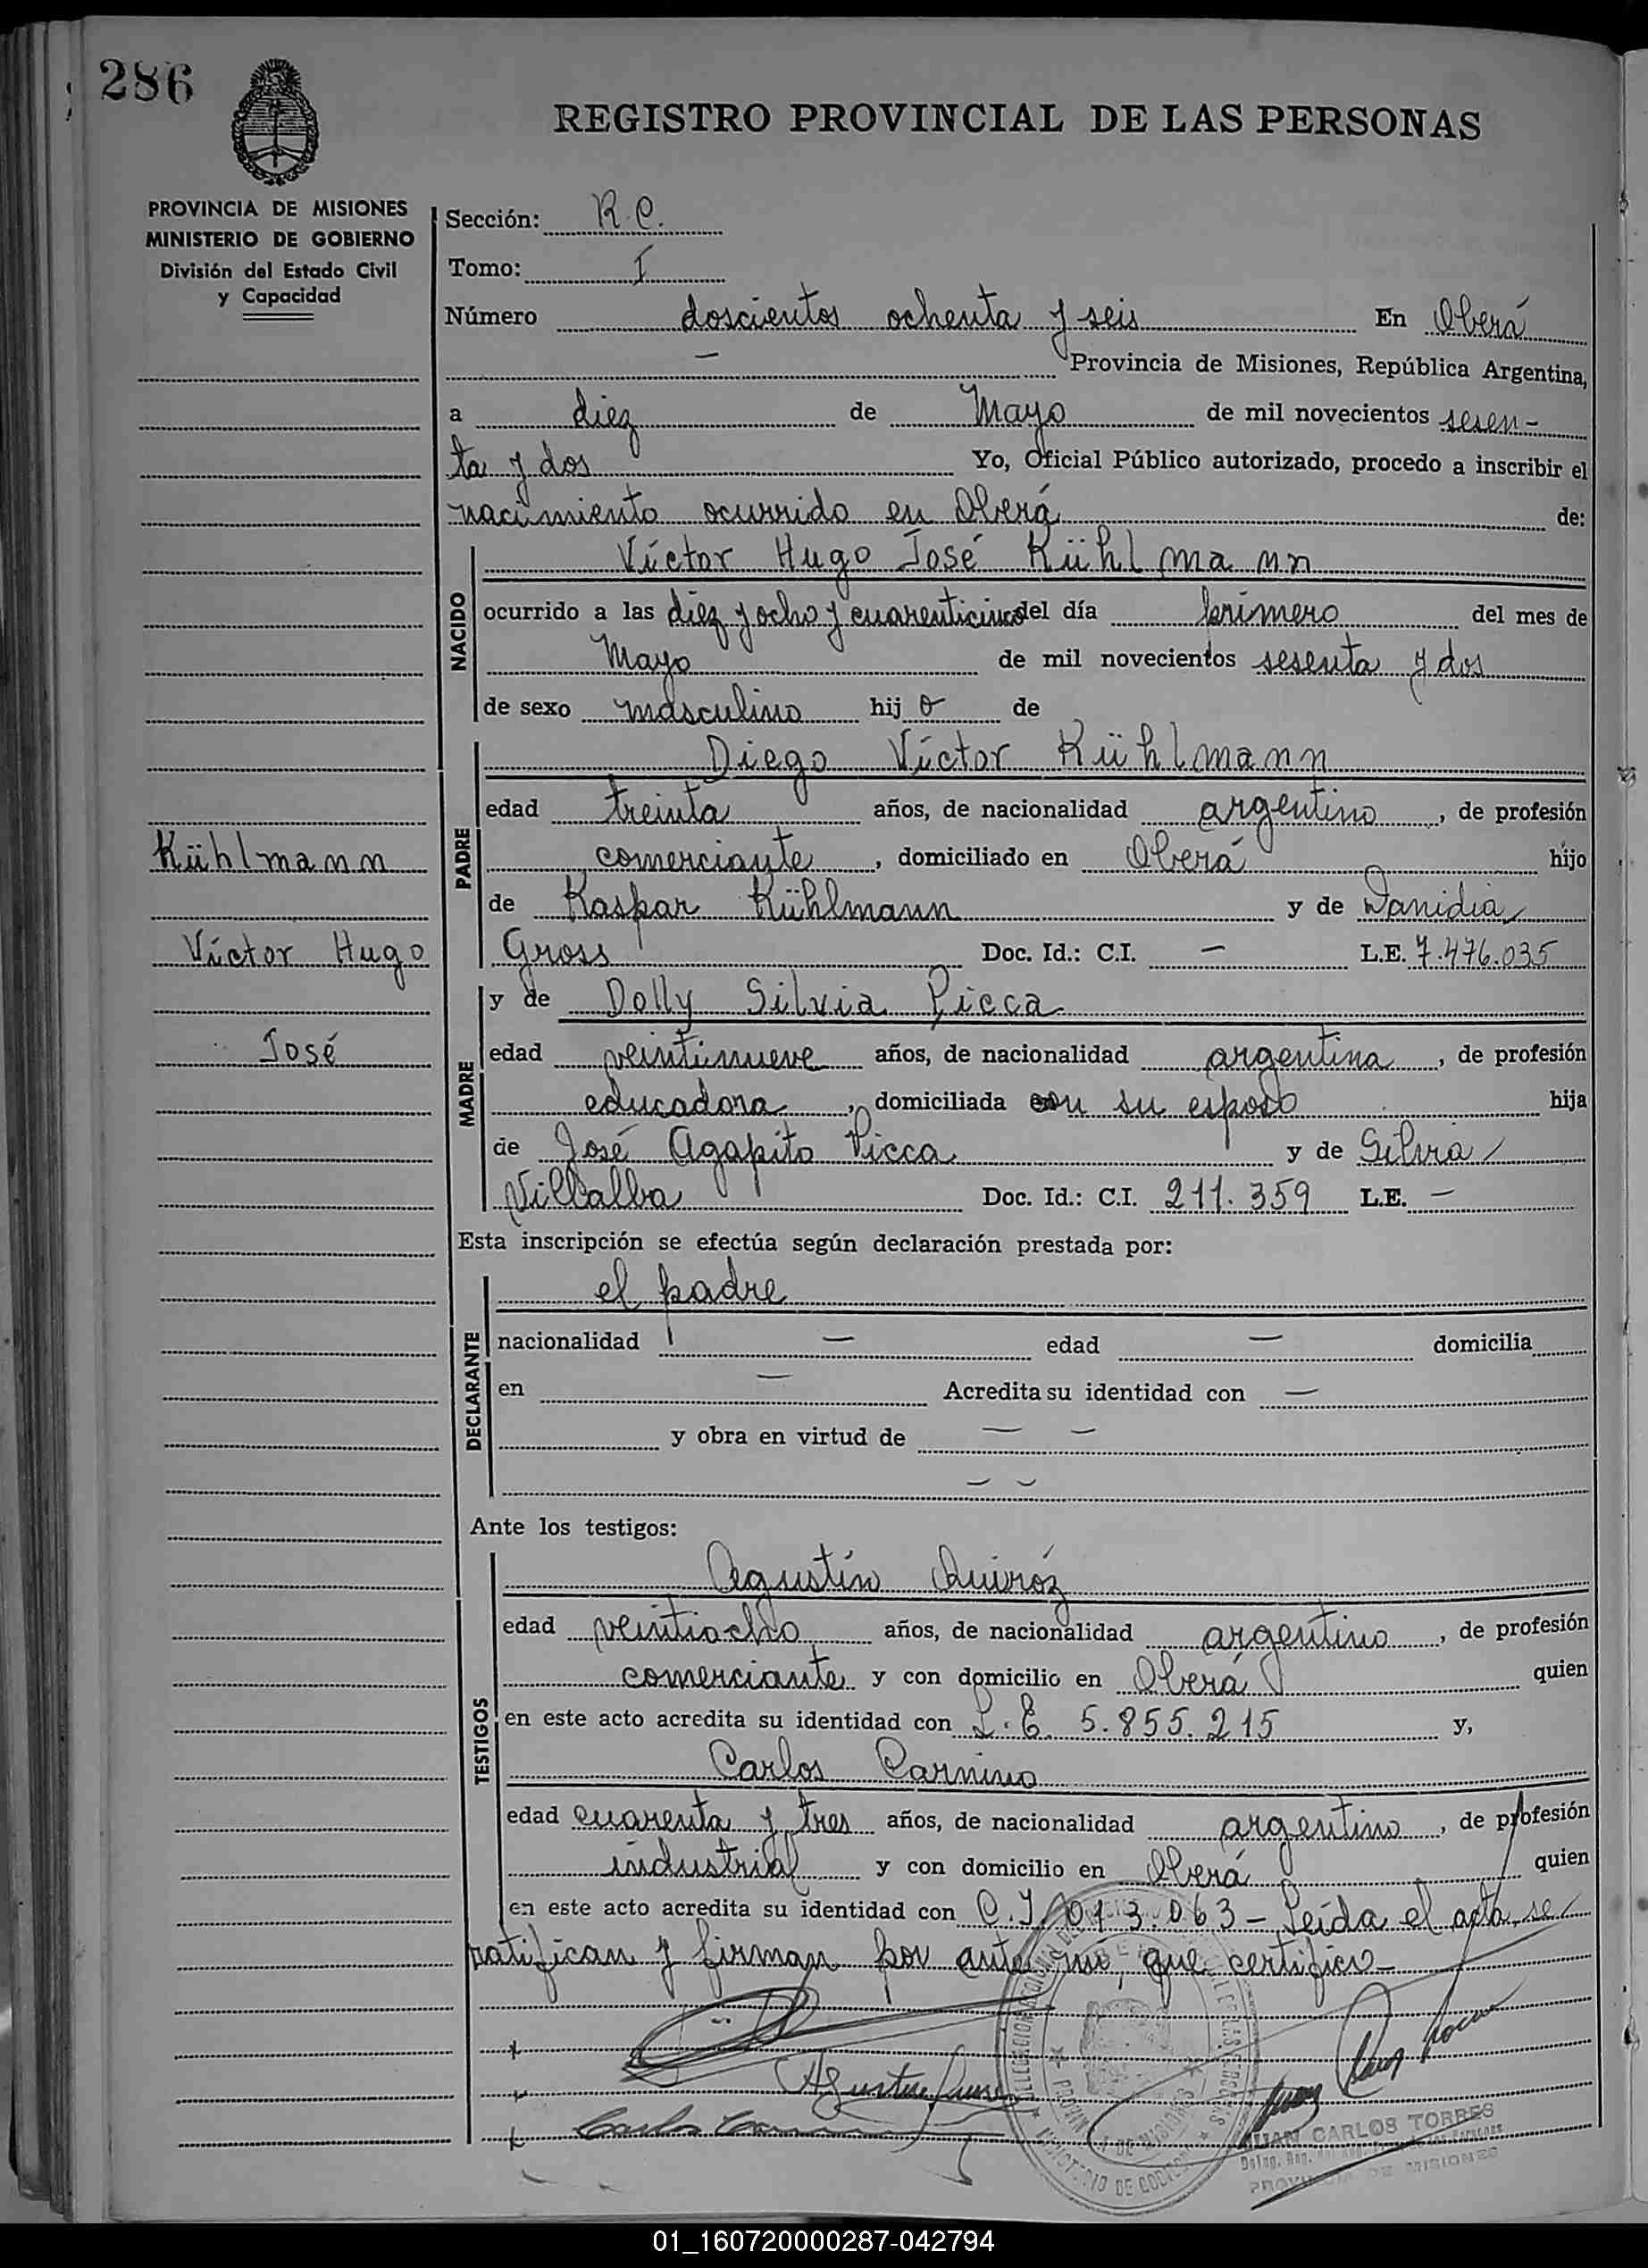 286
REGISTRO PROVINCIAL DE LAS PERSONAS
PROVINCIA DE MISIONES
MINISTERIO DE GOBIERNO
División del Estado Civil
y Capacidad
Sección: R.C.
Tomo: I
Número doscientos ochenta y seis En Oberá
— Provincia de Misiones, República Argentina,
a diez de Mayo de mil novecientos sesen-
ta y dos Yo, Oficial Público autorizado, procedo a inscribir el
nacimiento ocurrido en Oberá de:
NACIDO
Víctor Hugo José Kühlmann
ocurrido a las diez y ocho y cuarenticinco del día primero del mes de
Mayo de mil novecientos sesenta y dos
de sexo masculino hijo de
PADRE
Diego Víctor Kühlmann
edad treinta años, de nacionalidad argentino, de profesión
comerciante, domiciliado en Oberá hijo
Kühlmann
de Kaspar Kühlmann y de Wanidia
Víctor Hugo
Gross Doc. Id.: C.I. — L.E. 7.476.035
José
MADRE
y de Dolly Silvia Picca
edad veintinueve años, de nacionalidad argentina, de profesión
educadora, domiciliada con su esposo hija
de José Agapito Picca y de Silvia
Villalba Doc. Id.: C.I. 211.359 L.E. —
Esta inscripción se efectúa según declaración prestada por:
DECLARANTE
el padre
nacionalidad — edad — domicilia
en — Acredita su identidad con —
y obra en virtud de — —
— —
Ante los testigos:
TESTIGOS
Agustín Quiróz
edad veintiocho años, de nacionalidad argentino, de profesión
comerciante y con domicilio en Oberá quien
en este acto acredita su identidad con L.E. 5.855.215 y,
Carlos Carnino
edad cuarenta y tres años, de nacionalidad argentino, de profesión
industrial y con domicilio en Oberá quien
en este acto acredita su identidad con C.I. 013.063 - Leída el acta, se
ratifican y firman por ante mí, que certifico-
JUAN CARLOS TORRES
PROVINCIA DE MISIONES
01_160720000287-042794